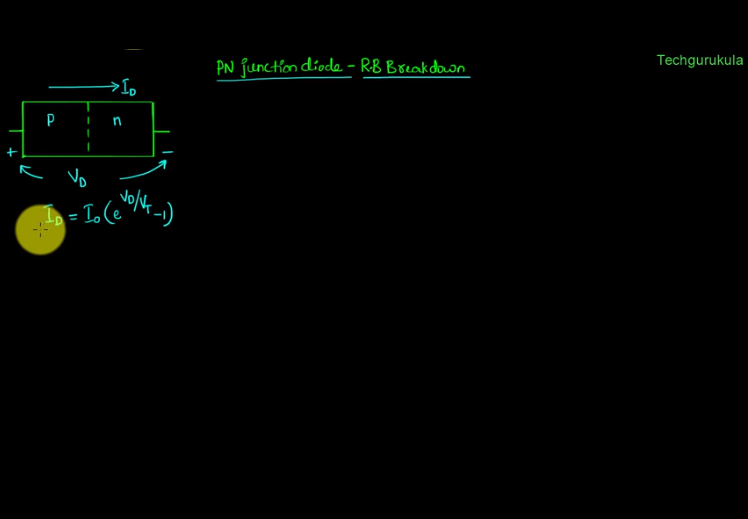 PN junction diode - R.B Breakdown
Techgurukula
I_D
p n
+ −
V_D
I_D = I_0 (e^{V_D/V_T} - 1)